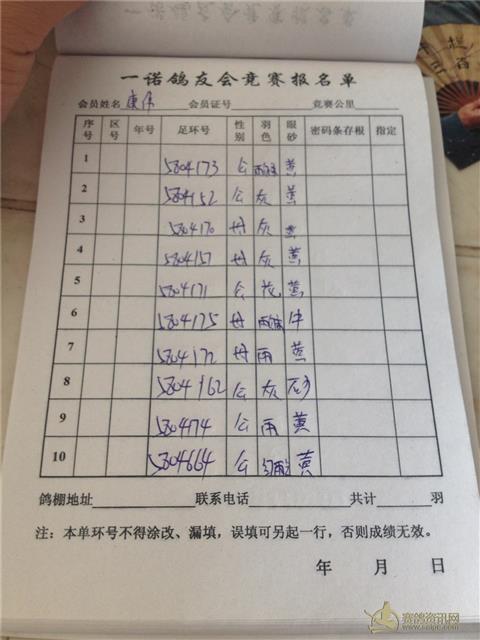 一诺鸽友会竞赛报名单
会员姓名 康伟 会员证号 竞赛公里
序号 区号 年号 足环号 性别 羽色 眼砂 密码条存根 指定
1 5804173 公 黄
2 5804152 公 灰 黄
3 5804170 母 灰 黄
4 5804157 母 灰 黄
5 5804171 公 花 黄
6 5804175 母 牛
7 5804172 母 雨 黄
8 5804162 公 灰 砂
9 580474 公 雨 黄
10 5804664 公 黄
鸽棚地址 联系电话 共计 羽
注：本单环号不得涂改、漏填，误填可另起一行，否则成绩无效。
年 月 日
赛鸽资讯网